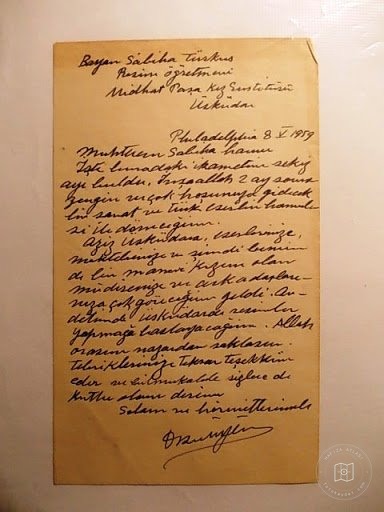 Bayan Sabiha Türkus
Resim öğretmeni
Midhat Paşa Kız Enstitüsü
Üsküdar
Philadelphia 8 V 1959
Muhterem Sabiha hanım
İşte buradaki ikametim sekiz
ayı buldu. İnşaallah 2 ay sonra
zengin ve çok hoşunuza gidecek
bir sanat ve Türk eserleri hamule
si ile döneceğim.
Aziz Üsküdara, eserlerinize,
mektebinize ve şimdi benim
de bir manevi kızım olan
müdirenize ve arkadaşları-
nıza çok göreceğim geldi. Av-
detimde Üsküdarda resimler
yapmağa başlayacağım. Allah
orasını nazardan saklasın.
Tebriklerinize tekrar teşekkür
eder ve bilmukabele sizlere de
kutlu olsun derim
Selam ve hürmetlerimle